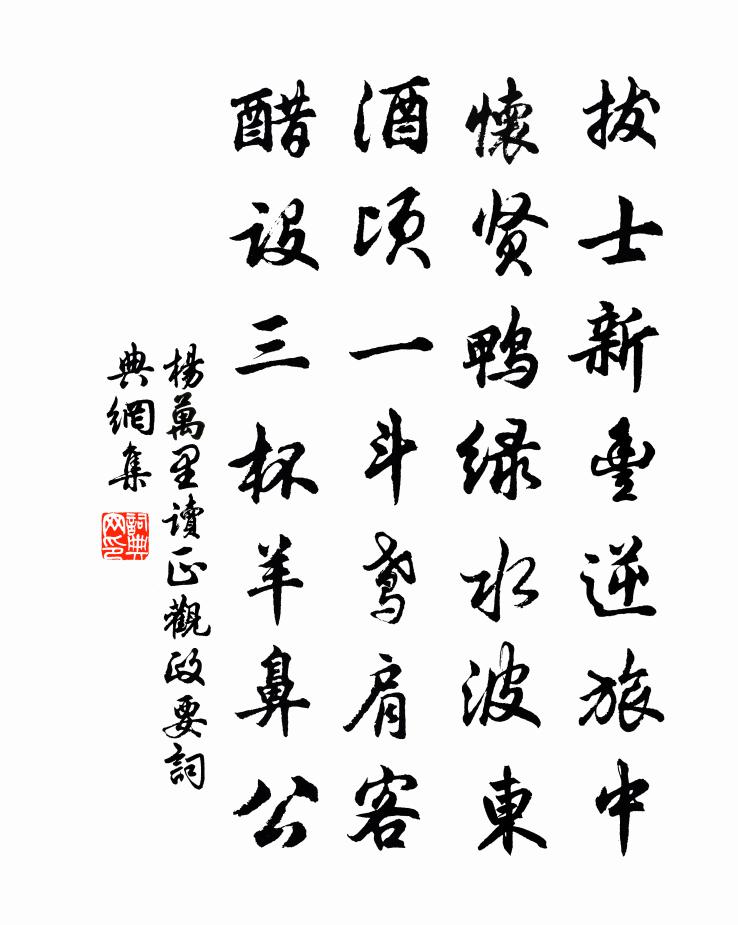 拔士新豐逆旅中
懷贤鴨緑水波東
酒頃一斗鳶肩客
醋設三杯羊鼻公
楊萬里讀正觀政要詞
典網集
詞典
网印